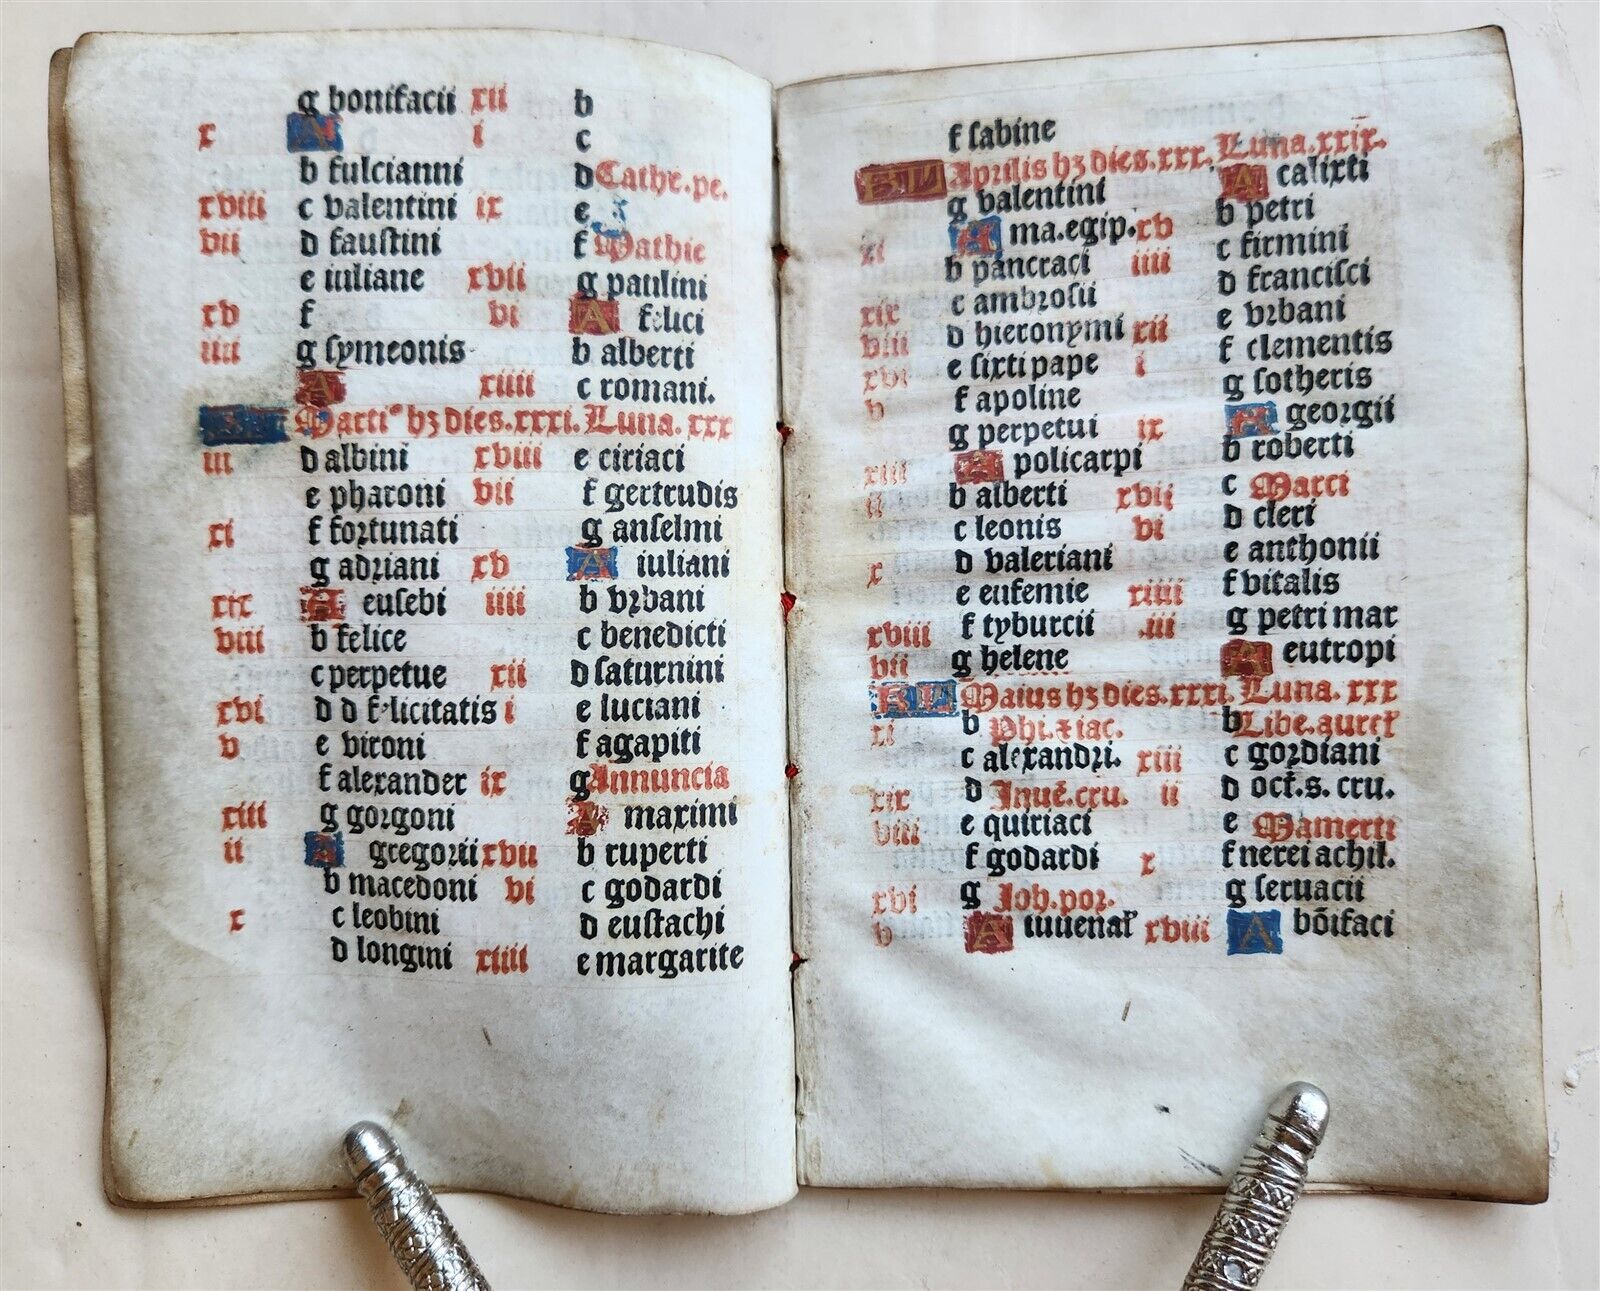 g bonifacii xii b
x A i c
b fulcianni d Cathe.pe.
xviii c valentini ix e
vii d faustini f Mathie
e iuliane xvii g paulini
xv f vi A felici
iiii g symeonis b alberti
A xiiii c romani.
KL Marti⁹ hȝ dies.xxxi. Luna. xxx
iii d albini xviii e ciriaci
e pharoni vii f gertrudis
xi f fortunati g anselmi
g adriani xv A iuliani
xix A eusebi iiii b vrbani
viii b felice c benedicti
c perpetue xii d saturnini
xvi d d felicitatis i e luciani
v e vironi f agapiti
f alexander ix g Annuncia
xiii g gorgoni A maximi
ii A gregorii xvii b ruperti
b macedoni vi c godardi
x c leobini d eustachi
d longini xiiii e margarite
f sabine
KL Aprilis hȝ dies.xxx. Luna.xxix.
g valentini A calixti
xi A ma.egip. xv b petri
b pancraci iiii c firmini
xix c ambrosii d francisci
viii d hieronymi xii e vrbani
xvi e sixti pape i f clementis
v f apoline g sotheris
g perpetui ix A georgii
xiii A policarpi b roberti
ii b alberti xvii c Marci
c leonis vi d cleri
x d valeriani e anthonii
e eufemie xiiii f vitalis
xviii f tyburcii .iii g petri mar
vii g helene A eutropi
KL Maius hȝ dies.xxxi. Luna. xxx
xi b Phi.⁊ iac. b Libe.aurel̄
c alexandri. xiii c gordiani
xix d Inuē.cru. ii d oct̄.s. cru.
viii e quiriaci e Mamerti
f godardi x f nerei achil.
xvi g Joh.por. g seruacii
v A iuuenal̄ xviii A bōifaci